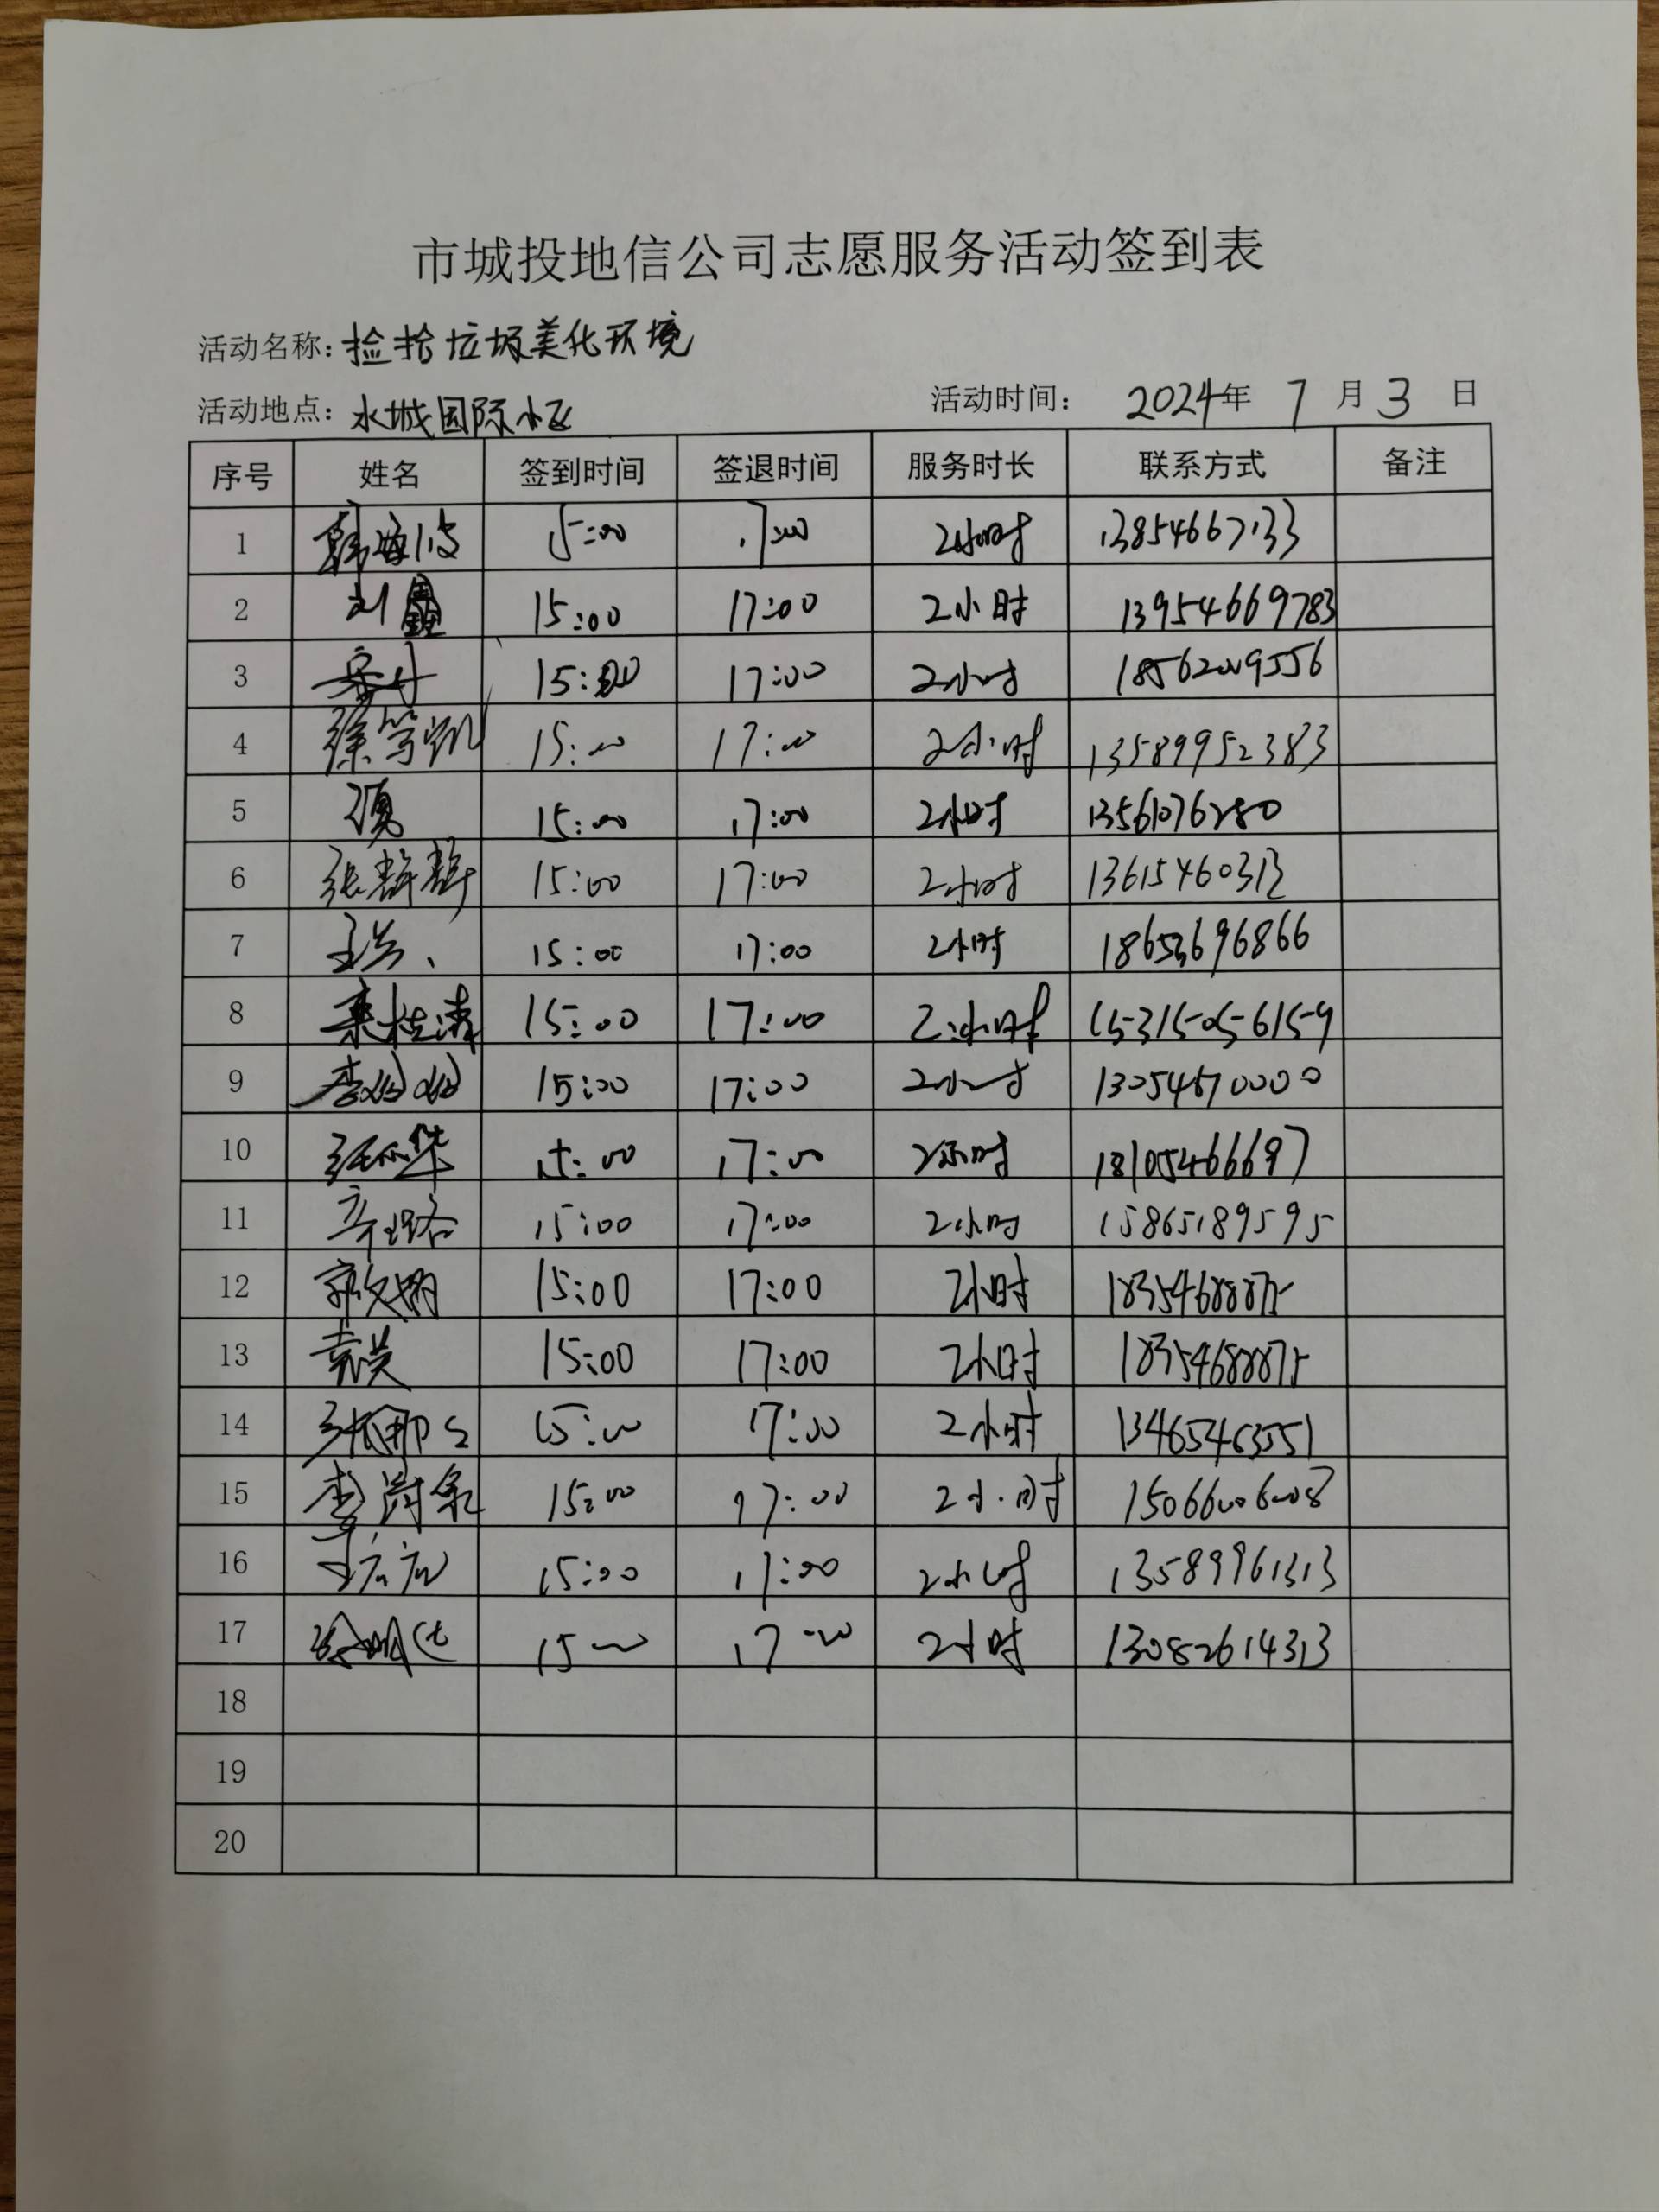 市城投地信公司志愿服务活动签到表
活动名称：捡拾垃圾美化环境
活动地点：水城国际小区 活动时间： 2024年 7 月 3 日
序号 姓名 签到时间 签退时间 服务时长 联系方式 备注
1 韩海波 15:00 17:00 2小时 13854667133
2 刘鑫 15:00 17:00 2小时 13954669783
3 15:00 17:00 2小时 18562009556
4 徐笃凯 15:00 17:00 2小时 13589952383
5 15:00 17:00 2小时 13561076280
6 张静静 15:00 17:00 2小时 13615460313
7 15:00 17:00 2小时
8 15:00 17:00 2小时 15315056159
9 15:00 17:00 2小时 13054670000
10 15:00 17:00 2小时 18105466697
11 辛璐 15:00 17:00 2小时 15865189595
12 15:00 17:00 2小时 18354688875
13 袁昊 15:00 17:00 2小时 18354688875
14 张娜娜 15:00 17:00 2小时 13465463551
15 15:00 17:00 2小时 15066006008
16 15:00 17:00 2小时 13589961313
17 15:00 17:00 2小时 13082614313
18
19
20